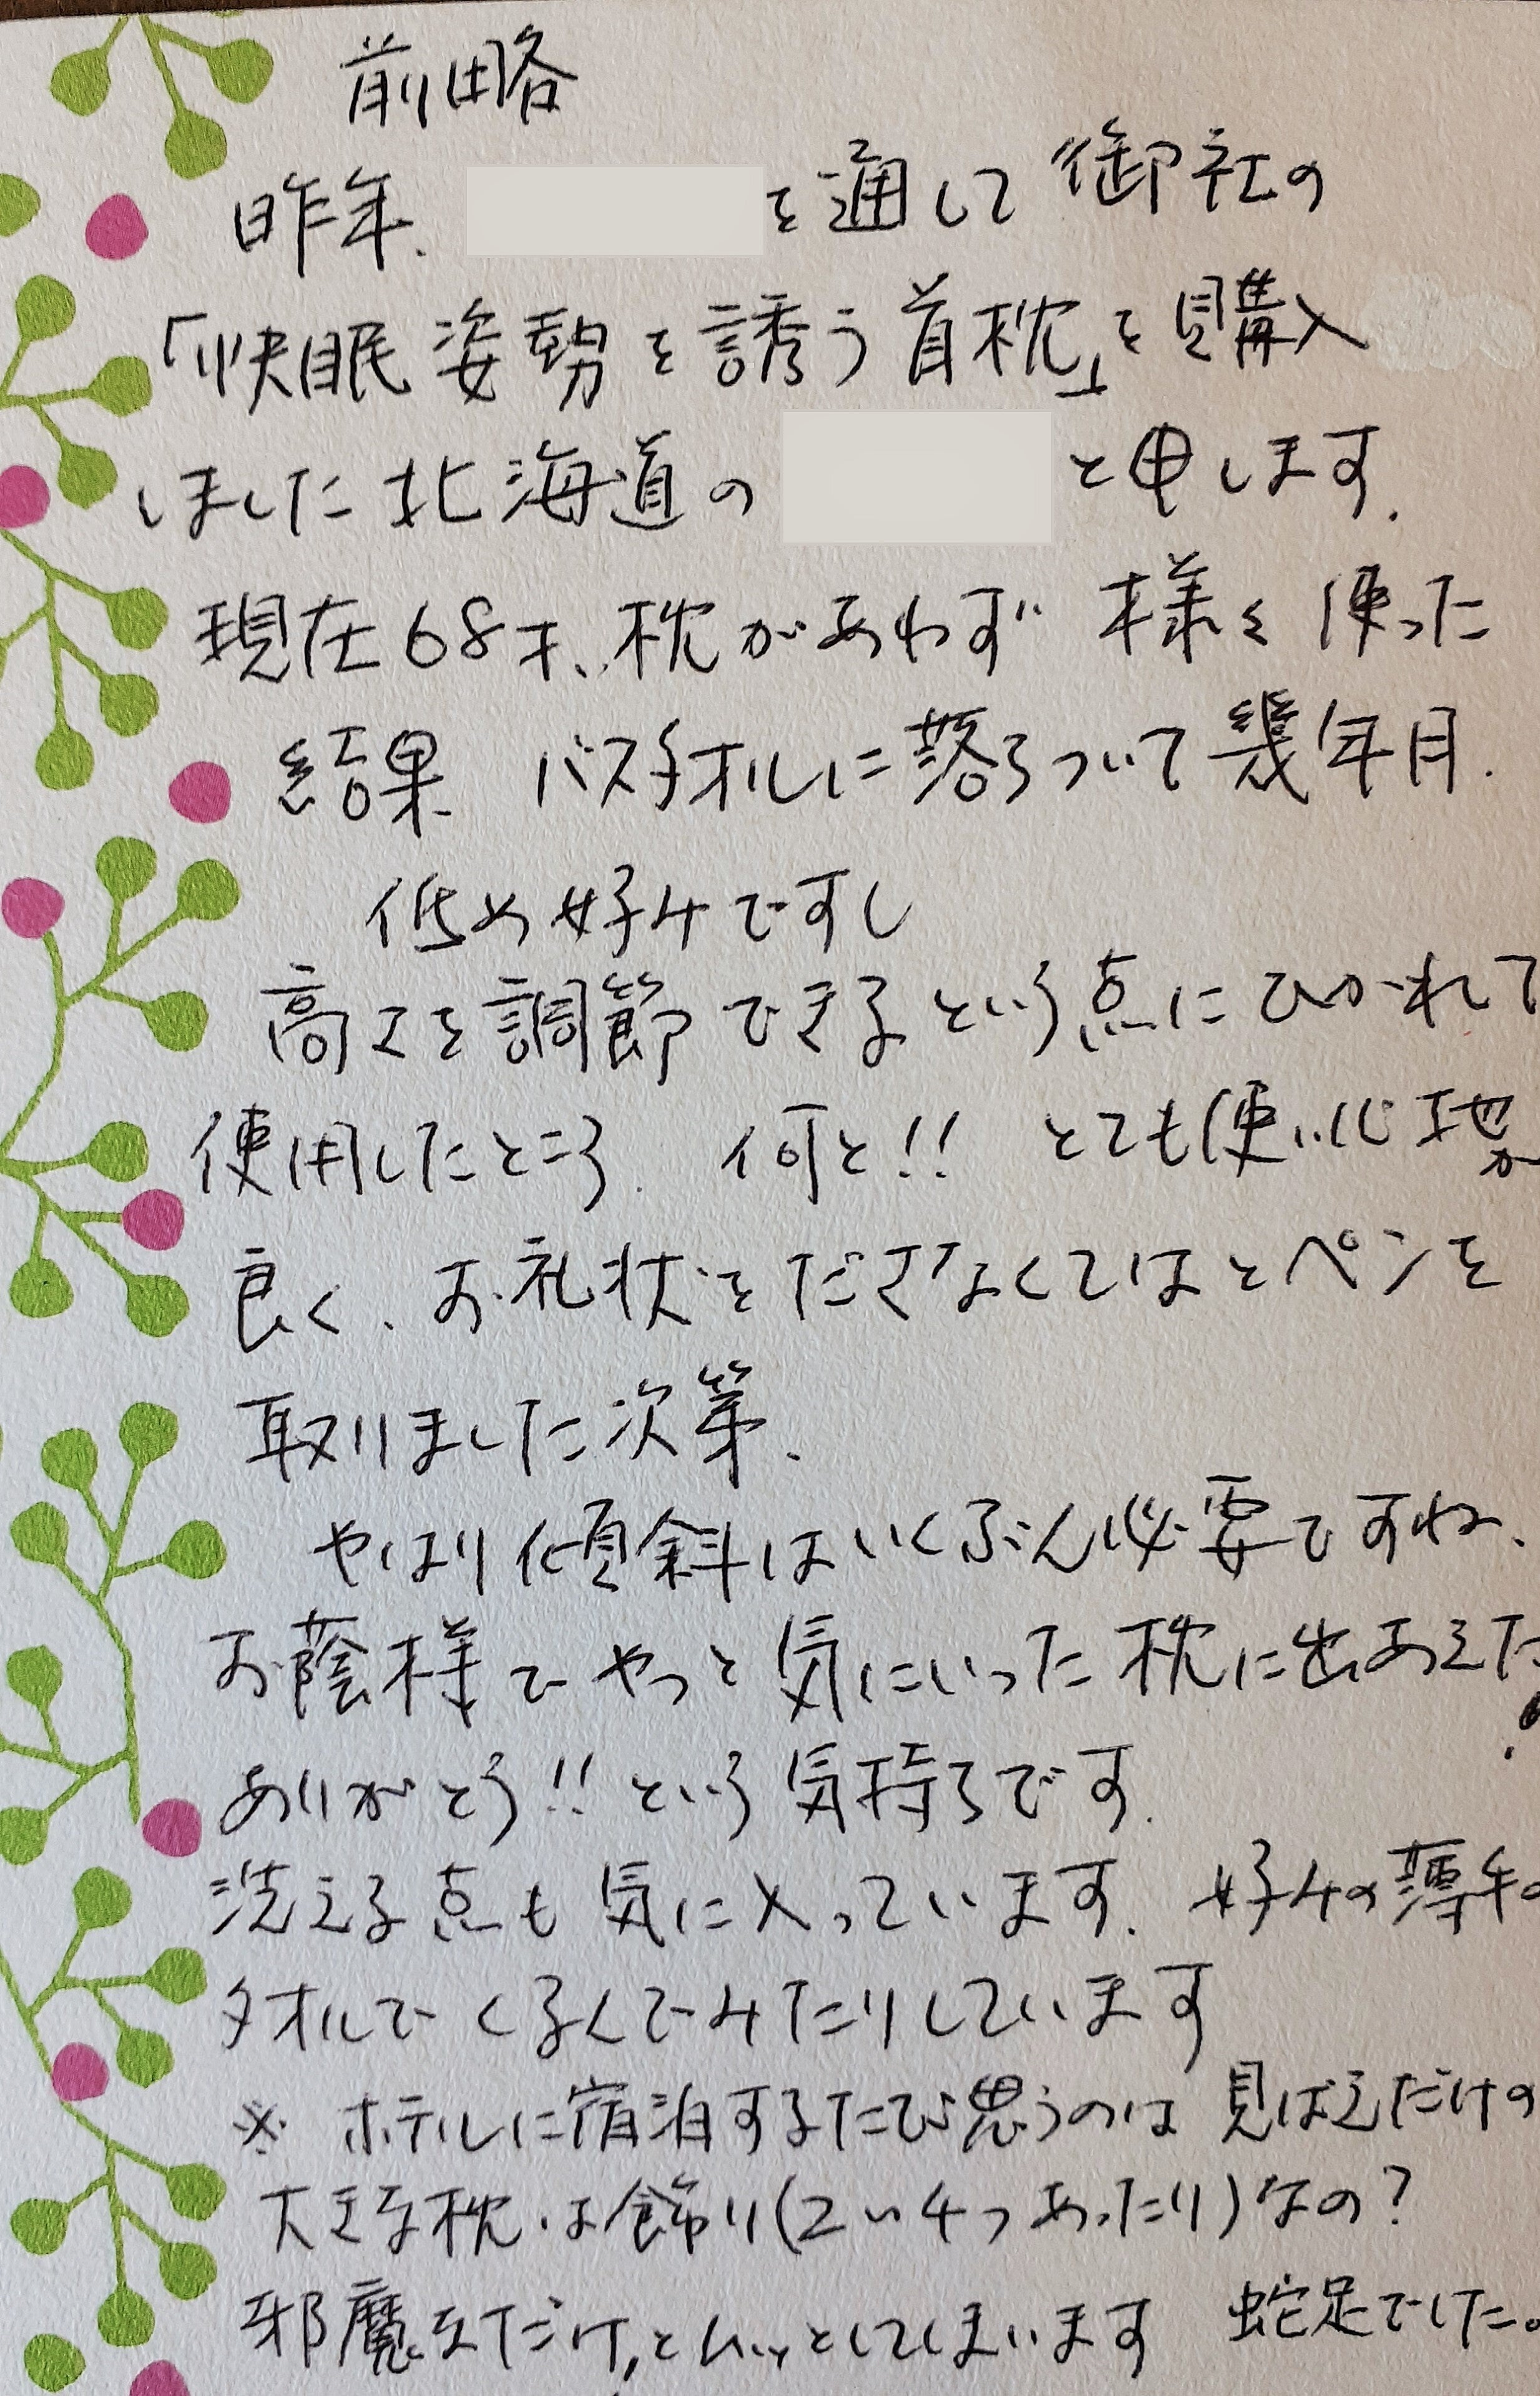 前略
昨年、を通して御社の
「快眠姿勢を誘う首枕」を購入
しました北海道のと申します。
現在68才、枕があわず様々使った
結果 バスタオルに落ちついて幾年月.
低め好みですし
高さを調節できるという点にひかれて
使用したところ、何と!! とても使い心地が
良く、お礼状をださなくてはとペンを
取りました次第、
やはり傾斜はいくぶん必要ですね、
お蔭様でやっと気にいった枕に出あえた!
ありがとう!!という気持ちです.
洗える点も気に入っています. 好みの薄手の
タオルでくるんでみたりしています
※ ホテルに宿泊するたび思うのは見ばえだけの
大きな枕、は飾り(2〜4つあったり)なの?
邪魔なだけ、とムッとしてしまいます 蛇足でした。